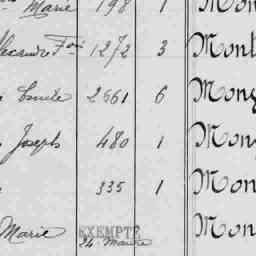 Marie 198 1 Mon
Alexandre Fois 1272 3 Mont
Emile 2661 6 Mong
Joseph 480 1 Mong
335 1 Mon
Marie EXEMPTÉ Mon
24. Mautre